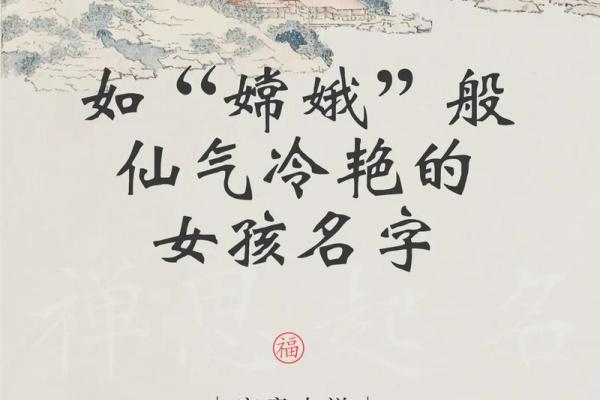 如“嫦娥”般
仙气冷艳的
女孩名字
禅思起名
福